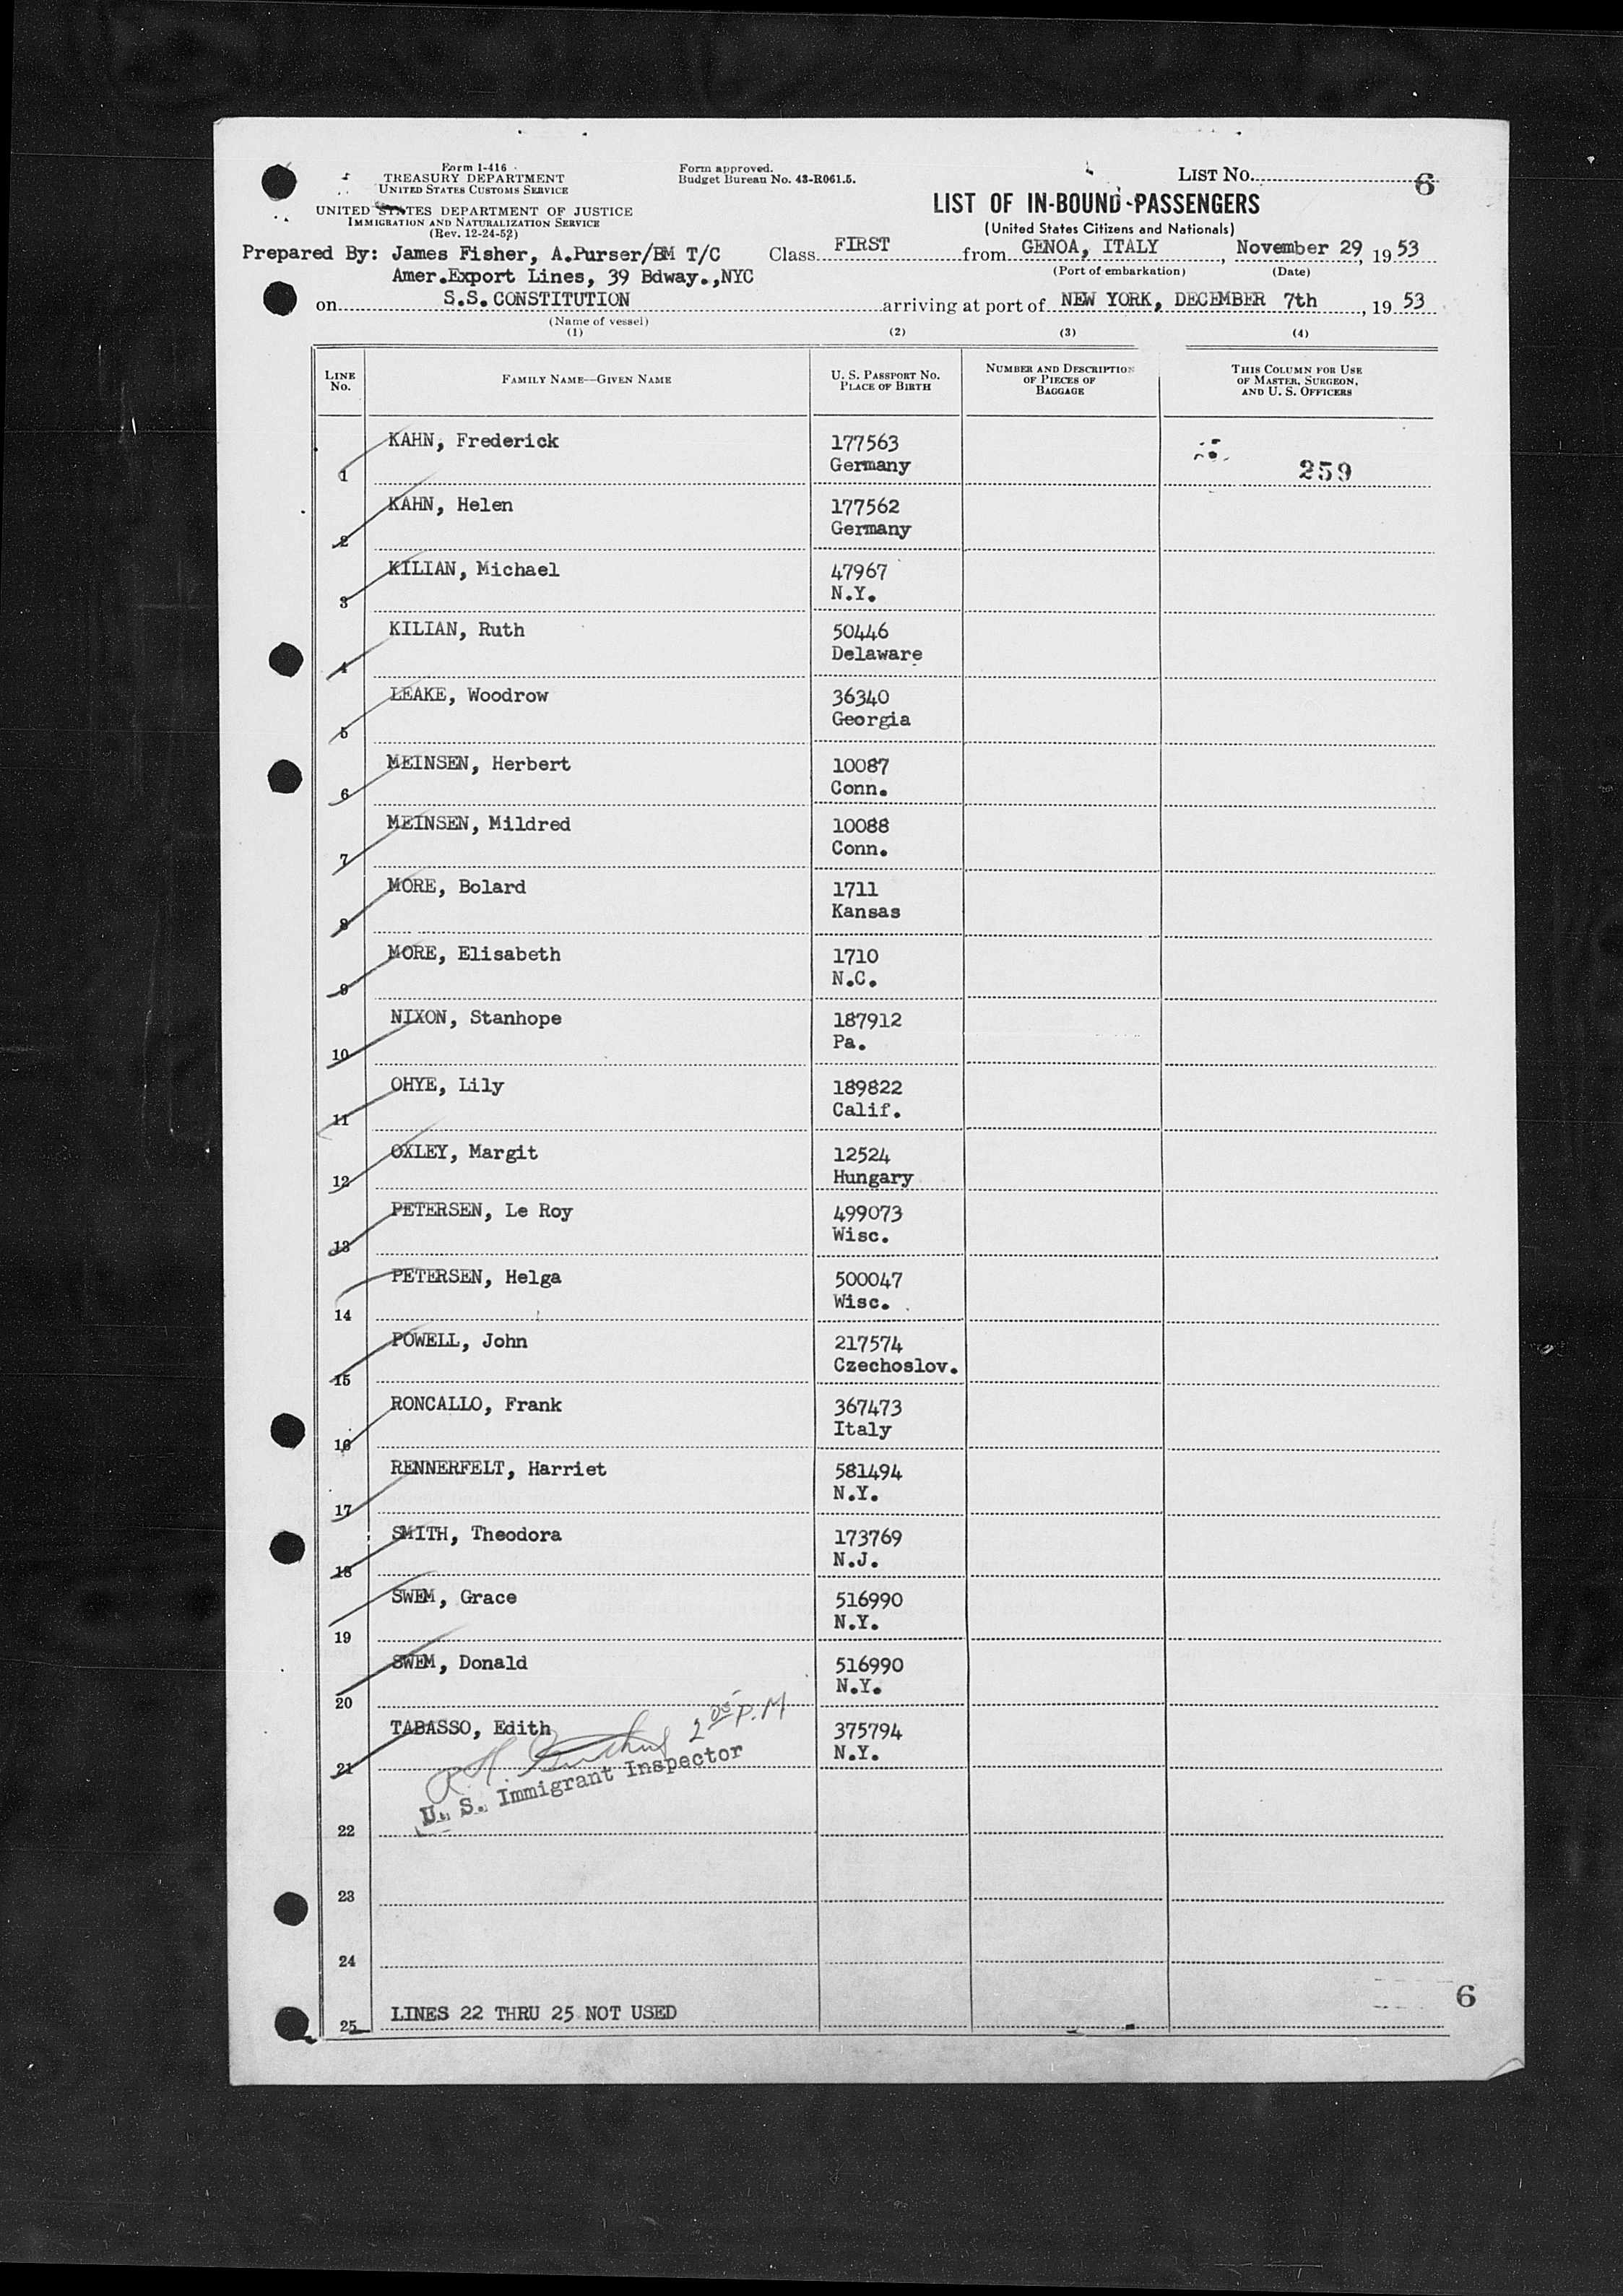 Form I-416
TREASURY DEPARTMENT
UNITED STATES CUSTOMS SERVICE
UNITED STATES DEPARTMENT OF JUSTICE
IMMIGRATION AND NATURALIZATION SERVICE
(Rev. 12-24-52)
Form approved.
Budget Bureau No. 43-R061.5.
LIST No. 6
LIST OF IN-BOUND PASSENGERS
(United States Citizens and Nationals)
Prepared By: James Fisher, A.Purser/BM T/C
Amer.Export Lines, 39 Bdway.,NYC
Class FIRST from GENOA, ITALY, November 29, 19 53
(Port of embarkation) (Date)
on S.S. CONSTITUTION arriving at port of NEW YORK, DECEMBER 7th, 19 53
(Name of vessel)
(1) (2) (3) (4)
LINE No.
FAMILY NAME—GIVEN NAME
U. S. PASSPORT NO.
PLACE OF BIRTH
NUMBER AND DESCRIPTION OF PIECES OF BAGGAGE
THIS COLUMN FOR USE OF MASTER, SURGEON, AND U. S. OFFICERS
1 KAHN, Frederick 177563 Germany 259
2 KAHN, Helen 177562 Germany
3 KILIAN, Michael 47967 N.Y.
4 KILIAN, Ruth 50446 Delaware
5 LEAKE, Woodrow 36340 Georgia
6 MEINSEN, Herbert 10087 Conn.
7 MEINSEN, Mildred 10088 Conn.
8 MORE, Bolard 1711 Kansas
9 MORE, Elisabeth 1710 N.C.
10 NIXON, Stanhope 187912 Pa.
11 OHYE, Lily 189822 Calif.
12 OXLEY, Margit 12524 Hungary
13 PETERSEN, Le Roy 499073 Wisc.
14 PETERSEN, Helga 500047 Wisc.
15 POWELL, John 217574 Czechoslov.
16 RONCALLO, Frank 367473 Italy
17 RENNERFELT, Harriet 581494 N.Y.
18 SMITH, Theodora 173769 N.J.
19 SWEM, Grace 516990 N.Y.
20 SWEM, Donald 516990 N.Y.
21 TABASSO, Edith 375794 N.Y.
2 00 P.M
U. S. Immigrant Inspector
22
23
24
25 LINES 22 THRU 25 NOT USED
6